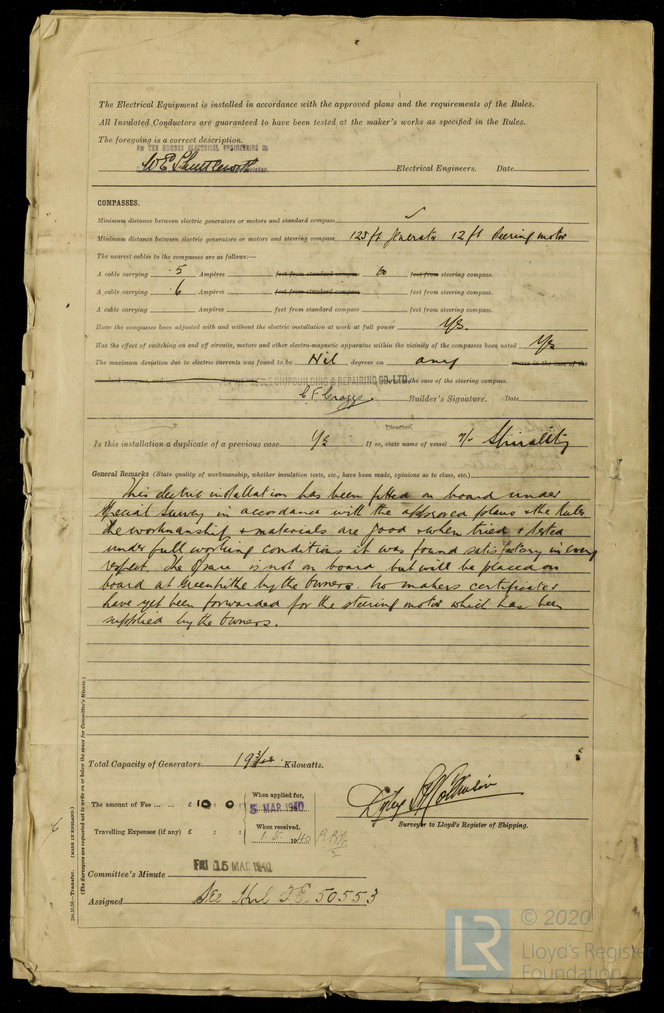 The Electrical Equipment is installed in accordance with the approved plans and the requirements of the Rules.
All Insulated Conductors are guaranteed to have been tested at the maker's works as specified in the Rules.
The foregoing is a correct description.
FOR THE HUMBER ELECTRICAL ENGINEERING Co
W E Shuttleworth Electrical Engineers. Date
COMPASSES.
Minimum distance between electric generators or motors and standard compass ✓
Minimum distance between electric generators or motors and steering compass 125 ft generator 12 ft steering motor
The nearest cables to the compasses are as follows:—
A cable carrying .5 Ampères feet from standard compass 60 feet from steering compass.
A cable carrying .6 Ampères feet from standard compass feet from steering compass.
A cable carrying Ampères feet from standard compass feet from steering compass.
Have the compasses been adjusted with and without the electric installation at work at full power Yes.
Has the effect of switching on and off circuits, motors and other electro-magnetic apparatus within the vicinity of the compasses been noted Yes
The maximum deviation due to electric currents was found to be Nil degrees on any course in the case of the
standard compass, and SHIPBUILDING & REPAIRING CO., LTD. the case of the steering compass.
Builder's Signature. Date
Director.
Is this installation a duplicate of a previous case Yes If so, state name of vessel M/V Spirality
General Remarks (State quality of workmanship, whether insulation tests, etc., have been made, opinions as to class, etc.)
This electric installation has been fitted on board under
Special Survey in accordance with the approved plans & the Rules
the workmanship & materials are good & when tried & tested
under full working conditions it was found satisfactory in every
respect. The spare is not on board but will be placed on
board at Greenhithe by the Owners. No makers certificates
have yet been forwarded for the steering motor which has been
supplied by the Owners.
Total Capacity of Generators 19 3/40 Kilowatts.
The amount of Fee ... ... £ 10 : 0 :
When applied for,
5 MAR 1940
Travelling Expenses (if any) £ : :
When received.
1.5.1940
Surveyor to Lloyd's Register of Shipping.
Committee's Minute FRI 15 MAR 1940
Assigned See Hul F.E. 50553
2m.10.38.—Transfer. (MADE IN ENGLAND.)
(The Surveyors are requested not to write on or below the space for Committee's Minute.)
LR
© 2020
Lloyd's Register
Foundation